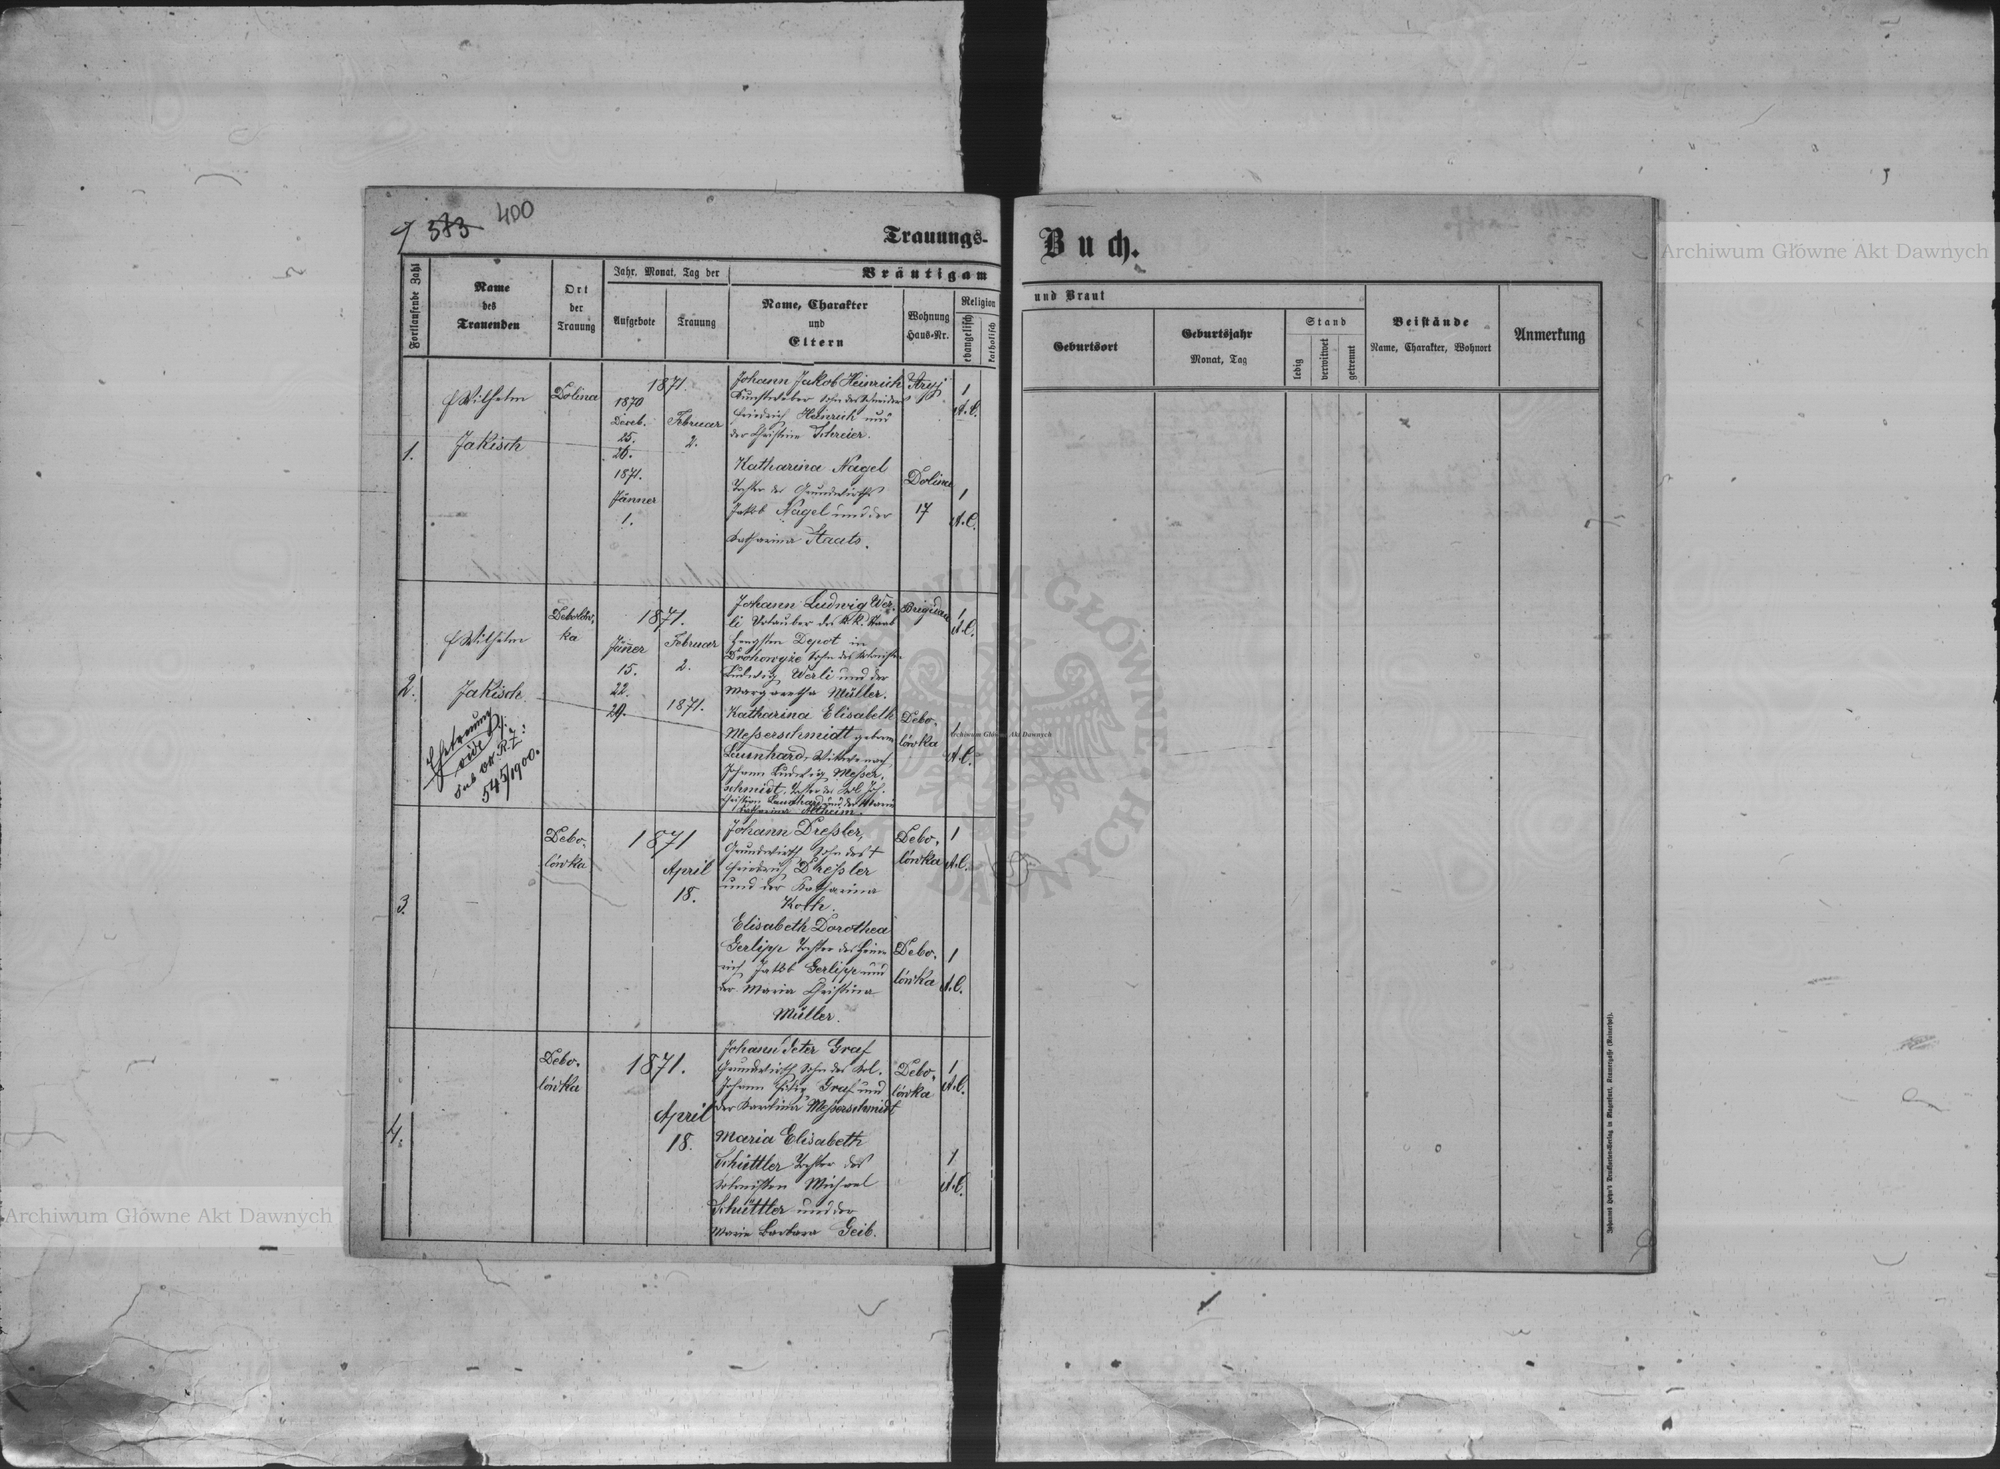 383 400
Trauungs-
Buch.
Fortlaufende Zahl
Name
des
Trauenden
Ort
der
Trauung
Jahr, Monat, Tag der
Aufgebote
Trauung
Bräutigam
Name, Charakter
und
Eltern
Wohnung
Haus-Nr.
Religion
evangelisch
katholisch
und Braut
Geburtsort
Geburtsjahr
Monat, Tag
Stand
ledig
verwitwet
getrennt
Beistände
Name, Charakter, Wohnort
Anmerkung
1.
Wilhelm
Jakisch
Dolina
1871.
1870
Dezeb.
25.
26.
1871.
Jänner
1.
Februar
2.
Johann Jakob Heinrich
Kunstweber Sohn des Schneiders
Friedrich Heinrich und
der Christine Schreier.
Stryj
1
A.C.
Katharina Nagel
Tochter des Grundwirths
Jakob Nagel und der
Katharina Staats.
Dolina
17
1
A.C.
2.
Wilhelm
Jakisch
Ehetrennung
vide
sub ok. R. Z:
545/1900.
Debolów-
ka
1871.
Jäner
15.
22.
29.
Februar
2.
1871.
Johann Ludwig Wer-
li Urlauber des k.k. Staats
Hengsten Depot in
Drohowyże Sohn des Kolonisten
Ludwig Werli und der
Margaretha Müller.
Brigidau
1
A.C.
Katharina Elisabeth
Messerschmidt geborne
Leonhard, Wittwe nach
Johann Ludwig Messer-
schmidt, Tochter des Kol. Joh.
Christian Leonhard und der Maria
Katharina
Debo-
lówka
1
A.C.
3.
Debo-
lówka
1871
April
18.
Johann Dressler,
Grundwirth Sohn des †
Friedrich Dressler
und der Katharina
Koth.
Debo-
lówka
1
A.C.
Elisabeth Dorothea
Gerlipp Tochter des Hein-
rich Jakob Gerlipp und
der Maria Christina
Müller.
Debo-
lówka
1
A.C.
4.
Debo-
lówka
1871.
April
18.
Johann Peter Graf
Grundwirth Sohn des Kol.
Johann Philip Graf und
der Karolina Messerschmidt
Debo-
lówka
1
A.C.
Maria Elisabeth
Schüttler Tochter des
Kolonisten Michael
Schüttler und der
Maria Barbara Geib.
1
A.C.
Archiwum Główne Akt Dawnych
Archiwum Główne Akt Dawnych
Archiwum Główne Akt Dawnych